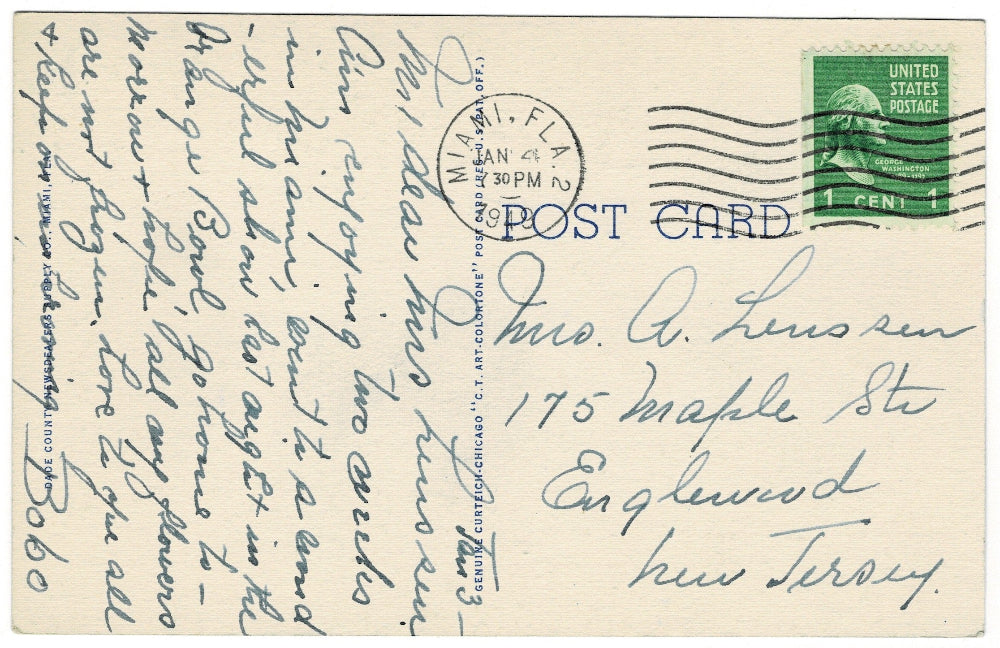 Jan 3 -
My dear Mrs Lenssen
Am enjoying two weeks
in Miami. Went to a wond
- erful show last night in the
Orange Bowl, go home to -
morrow & hope all my flowers
are not frozen. Love to you all
& keep on
Bobo
DADE COUNTY NEWSDEALERS SUPPLY CO., MIAMI, FLA.
GENUINE CURTEICH-CHICAGO "C.T. ART-COLORTONE" POST CARD (REG. U.S. PAT. OFF.)
MIAMI, FLA. 2
JAN 4
30 PM
POST CARD
UNITED
STATES
POSTAGE
GEORGE
WASHINGTON
1 CENT 1
Mrs. A. Lenssen
175 Maple Str
Englewood
New Jersey.